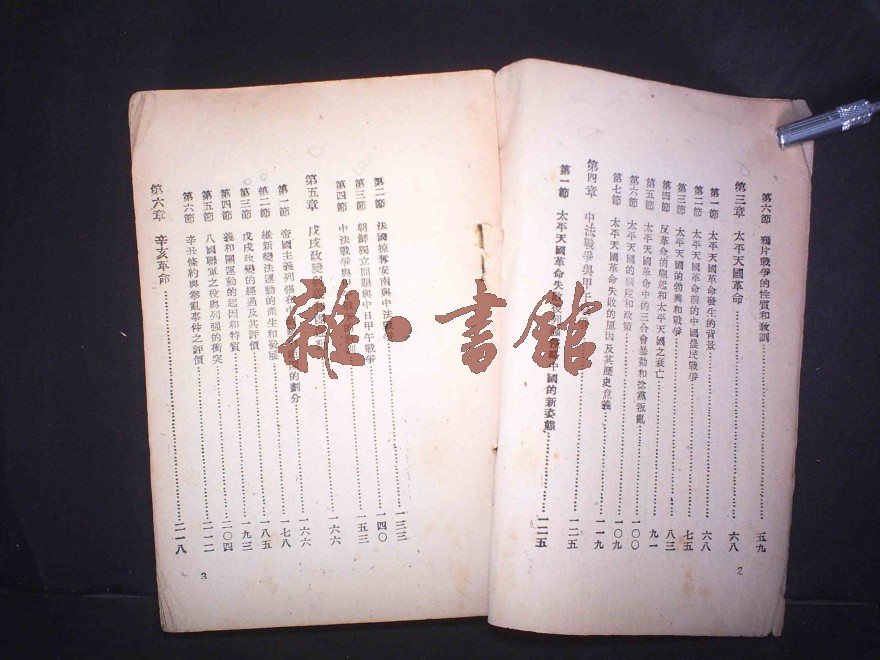 第六節 鴉片戰爭的性質和教訓……五九
第三章 太平天國革命……六八
第一節 太平天國革命發生的背景……六八
第二節 太平天國革命前的中國農民戰爭……七五
第三節 太平天國的勃興和戰爭……八三
第四節 反革命的崛起和太平天國之衰亡……九一
第五節 太平天國革命中的三合會暴動和捻黨叛亂……一〇〇
第六節 太平天國的制度和政策……一〇九
第七節 太平天國革命失敗的原因及其歷史意義……一一九
第四章 中法戰爭與甲午……一二五
第一節 太平天國革命失敗 中國的新姿態……一二五
2
第二節 法國掠奪安南與中法戰……一三三
第三節 朝鮮獨立問題與中日甲午戰爭……一四〇
第四節 中法戰爭與……一五三
第五章 戊戌政變與……一六六
第一節 帝國主義列强在中國 的劃分……一六六
第二節 維新變法運動的產生和發展……一七八
第三節 戊戌政變的經過及其評價……一八五
第四節 義和團運動的起因和特質……一九三
第五節 八國聯軍之役與列强的衝突……二〇四
第六節 辛丑條約與拳亂事件之評價……二一二
第六章 辛亥革命……二一八
3
雜·書館